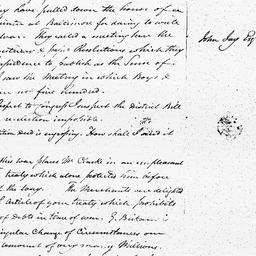 have pulled down the houses of a
at Baltimore for daring to write
war. They called a meeting here the
Resolutions which they
to publish as the Sense of
saw the Meeting in which Boys &
not five hundred.
John Jay Esq
the District Bill
election impossible.
How shall I send it
this war places Mr Clarke in an unpleasant
treaty which alone protected him before
the way. The Merchants are delighted
Article of your treaty, which prohibits
of debts in time of war. G. Britain is
singular Change of Circumstances our
amount of very many Millions.